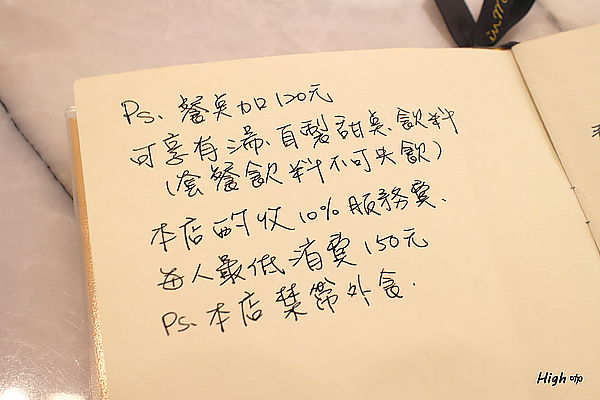 Ps. 餐點加120元
可享有湯、自製甜點、飲料
(套餐飲料不可失飲)
本店酌收10%服務費.
每人最低消費150元
Ps. 本店禁帶外食.
High 咖